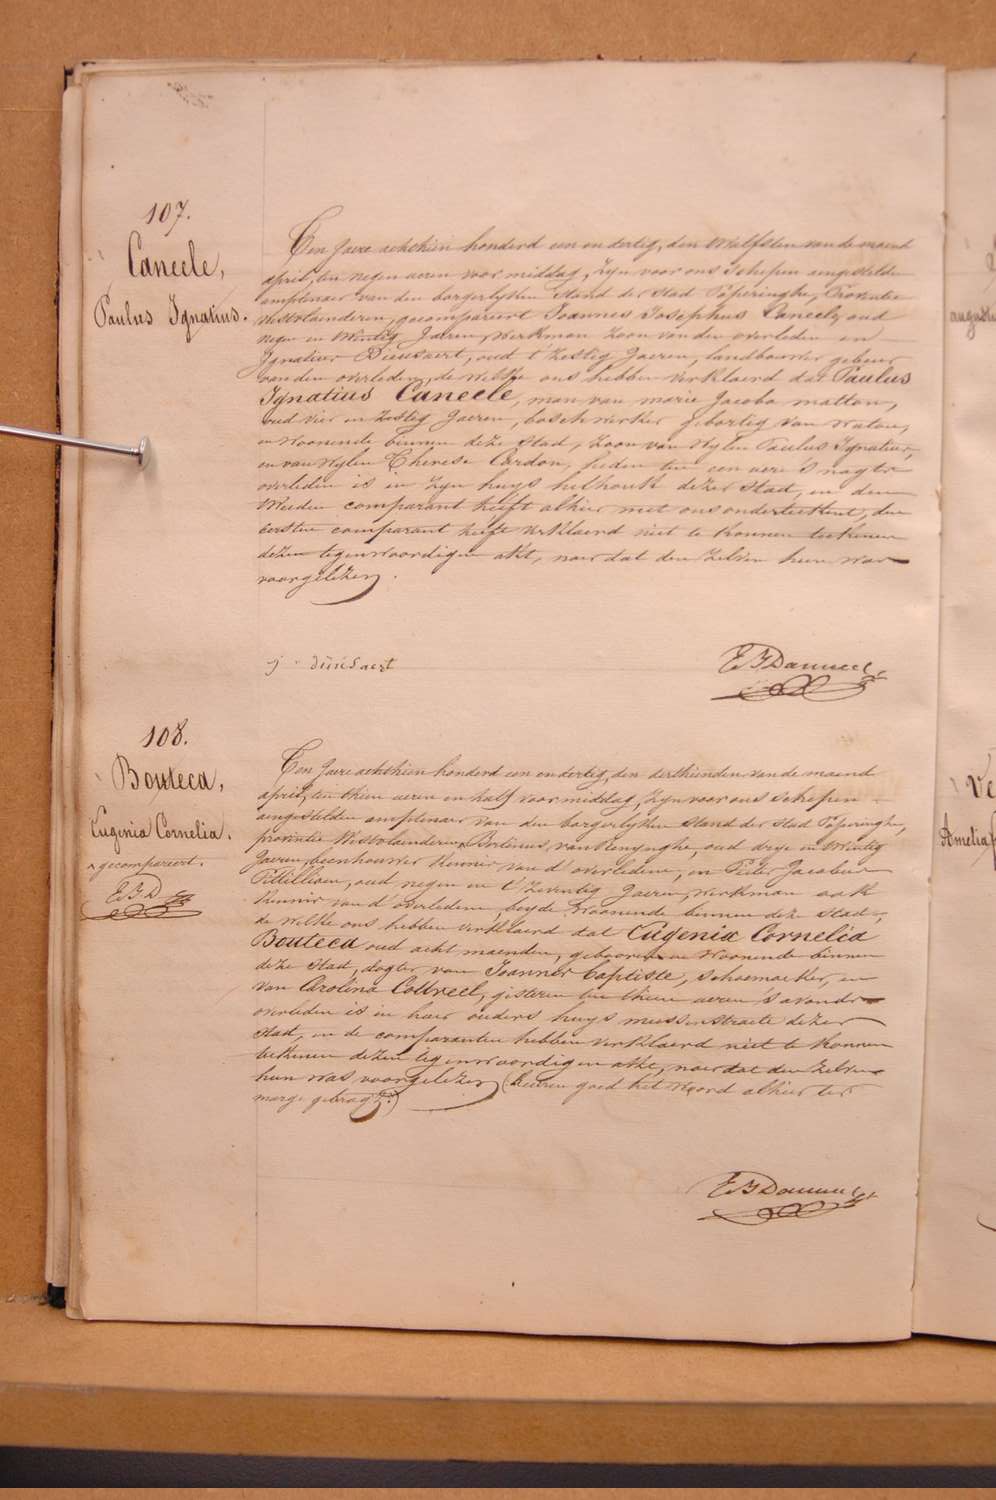 107.
Caneele,
Paulus Ignatius.
Ten Jaere achthien honderd een en dertig, den twalfsten van de maend
april, ten negen ueren voor middag, zyn voor ons schepen aengestelden
amptenaer van den borgerlyken stand der stad Poperinghe, Provintie
Westvlaenderen, gecompareert Joannes Josephus Caneele, oud
negen en twintig Jaeren, werkman zoon van den overleden en
Ignatius Dieusaert, oud t'zestig Jaeren, landbouwer gebeur
van den overleden, de welke ons hebben verklaerd dat Paulus
Ignatius Caneele, man van marie Jacoba matton,
oud vier en zestig Jaeren, boschwerker gebortig van Watou,
en woonende binnen deze stad, zoon van wylen Paulus Ignatius,
en van wylen Therese Cardon, heden ten een uere 's nagts
overleden is in zyn huys helhoek dezer stad, en den
tweeden comparant heeft alhier met ons onderteekent, den
eersten comparant heeft verklaerd niet te konnen teekenen
dezen tegenwoordigen akt, naer dat den zelven hun was
voorgelezen.
j. diusaert
108.
Bouteca,
Eugenia Cornelia.
gecompareert.
Ten Jaere achthien honderd een en dertig, den derthienden van de maend
april, ten thien ueren en half voor middag, zyn voor ons schepen
aengestelden amptenaer van den borgerlyken stand der stad Poperinghe,
provintie Westvlaenderen, Bertinus van Renynghe, oud drye en twintig
Jaeren, beenhouwer kennis van d'overledene, en Pieter Jacobus
Pittillioen, oud negen en t'zeventig Jaeren, werkman ook
kennis van d'overledene, beyde woonende binnen deze stad,
de welke ons hebben verklaerd dat Eugenia Cornelia
Bouteca oud acht maenden, gebooren en woonende binnen
deze stad, dogter van Joannes Baptiste, schoemaeker, en
van Carolina Cottreel, gisteren ten thien ueren 's avonds
overleden is in haer ouders huys meessenstraete dezer
stad, en de comparanten hebben verklaerd niet te konnen
teekenen dezen tegenwoordigen akt, naer dat den zelven
hun was voorgelezen (keuren goed het woord alhier ter
marge gebragt.)